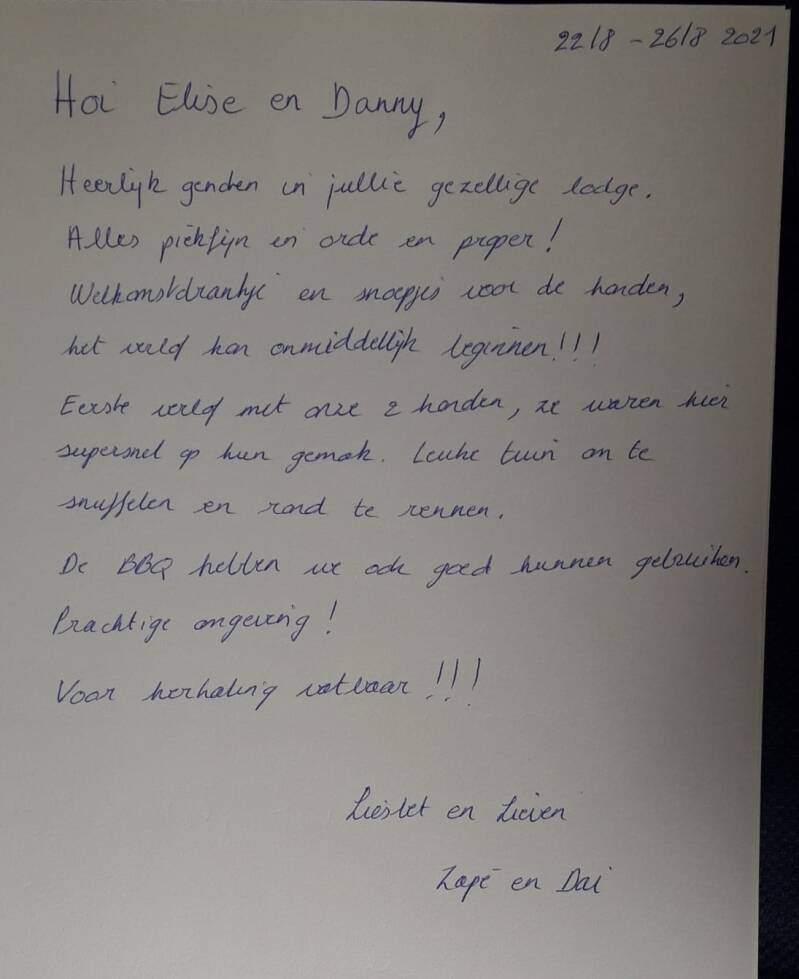 22/8 - 26/8 2021
Hoi Elise en Danny,
Heerlijk genoten in jullie gezellige lodge.
Alles piekfijn in orde en proper!
Welkomstdrankje en snoepjes voor de honden,
het verlof kon onmiddellijk beginnen!!!
Eerste verlof met onze 2 honden, ze waren hier
supersnel op hun gemak. Leuke tuin om te
snuffelen en rond te rennen.
De BBQ hebben we ook goed kunnen gebruiken.
Prachtige omgeving!
Voor herhaling vatbaar!!!
Liesbet en Lieven
en Dai